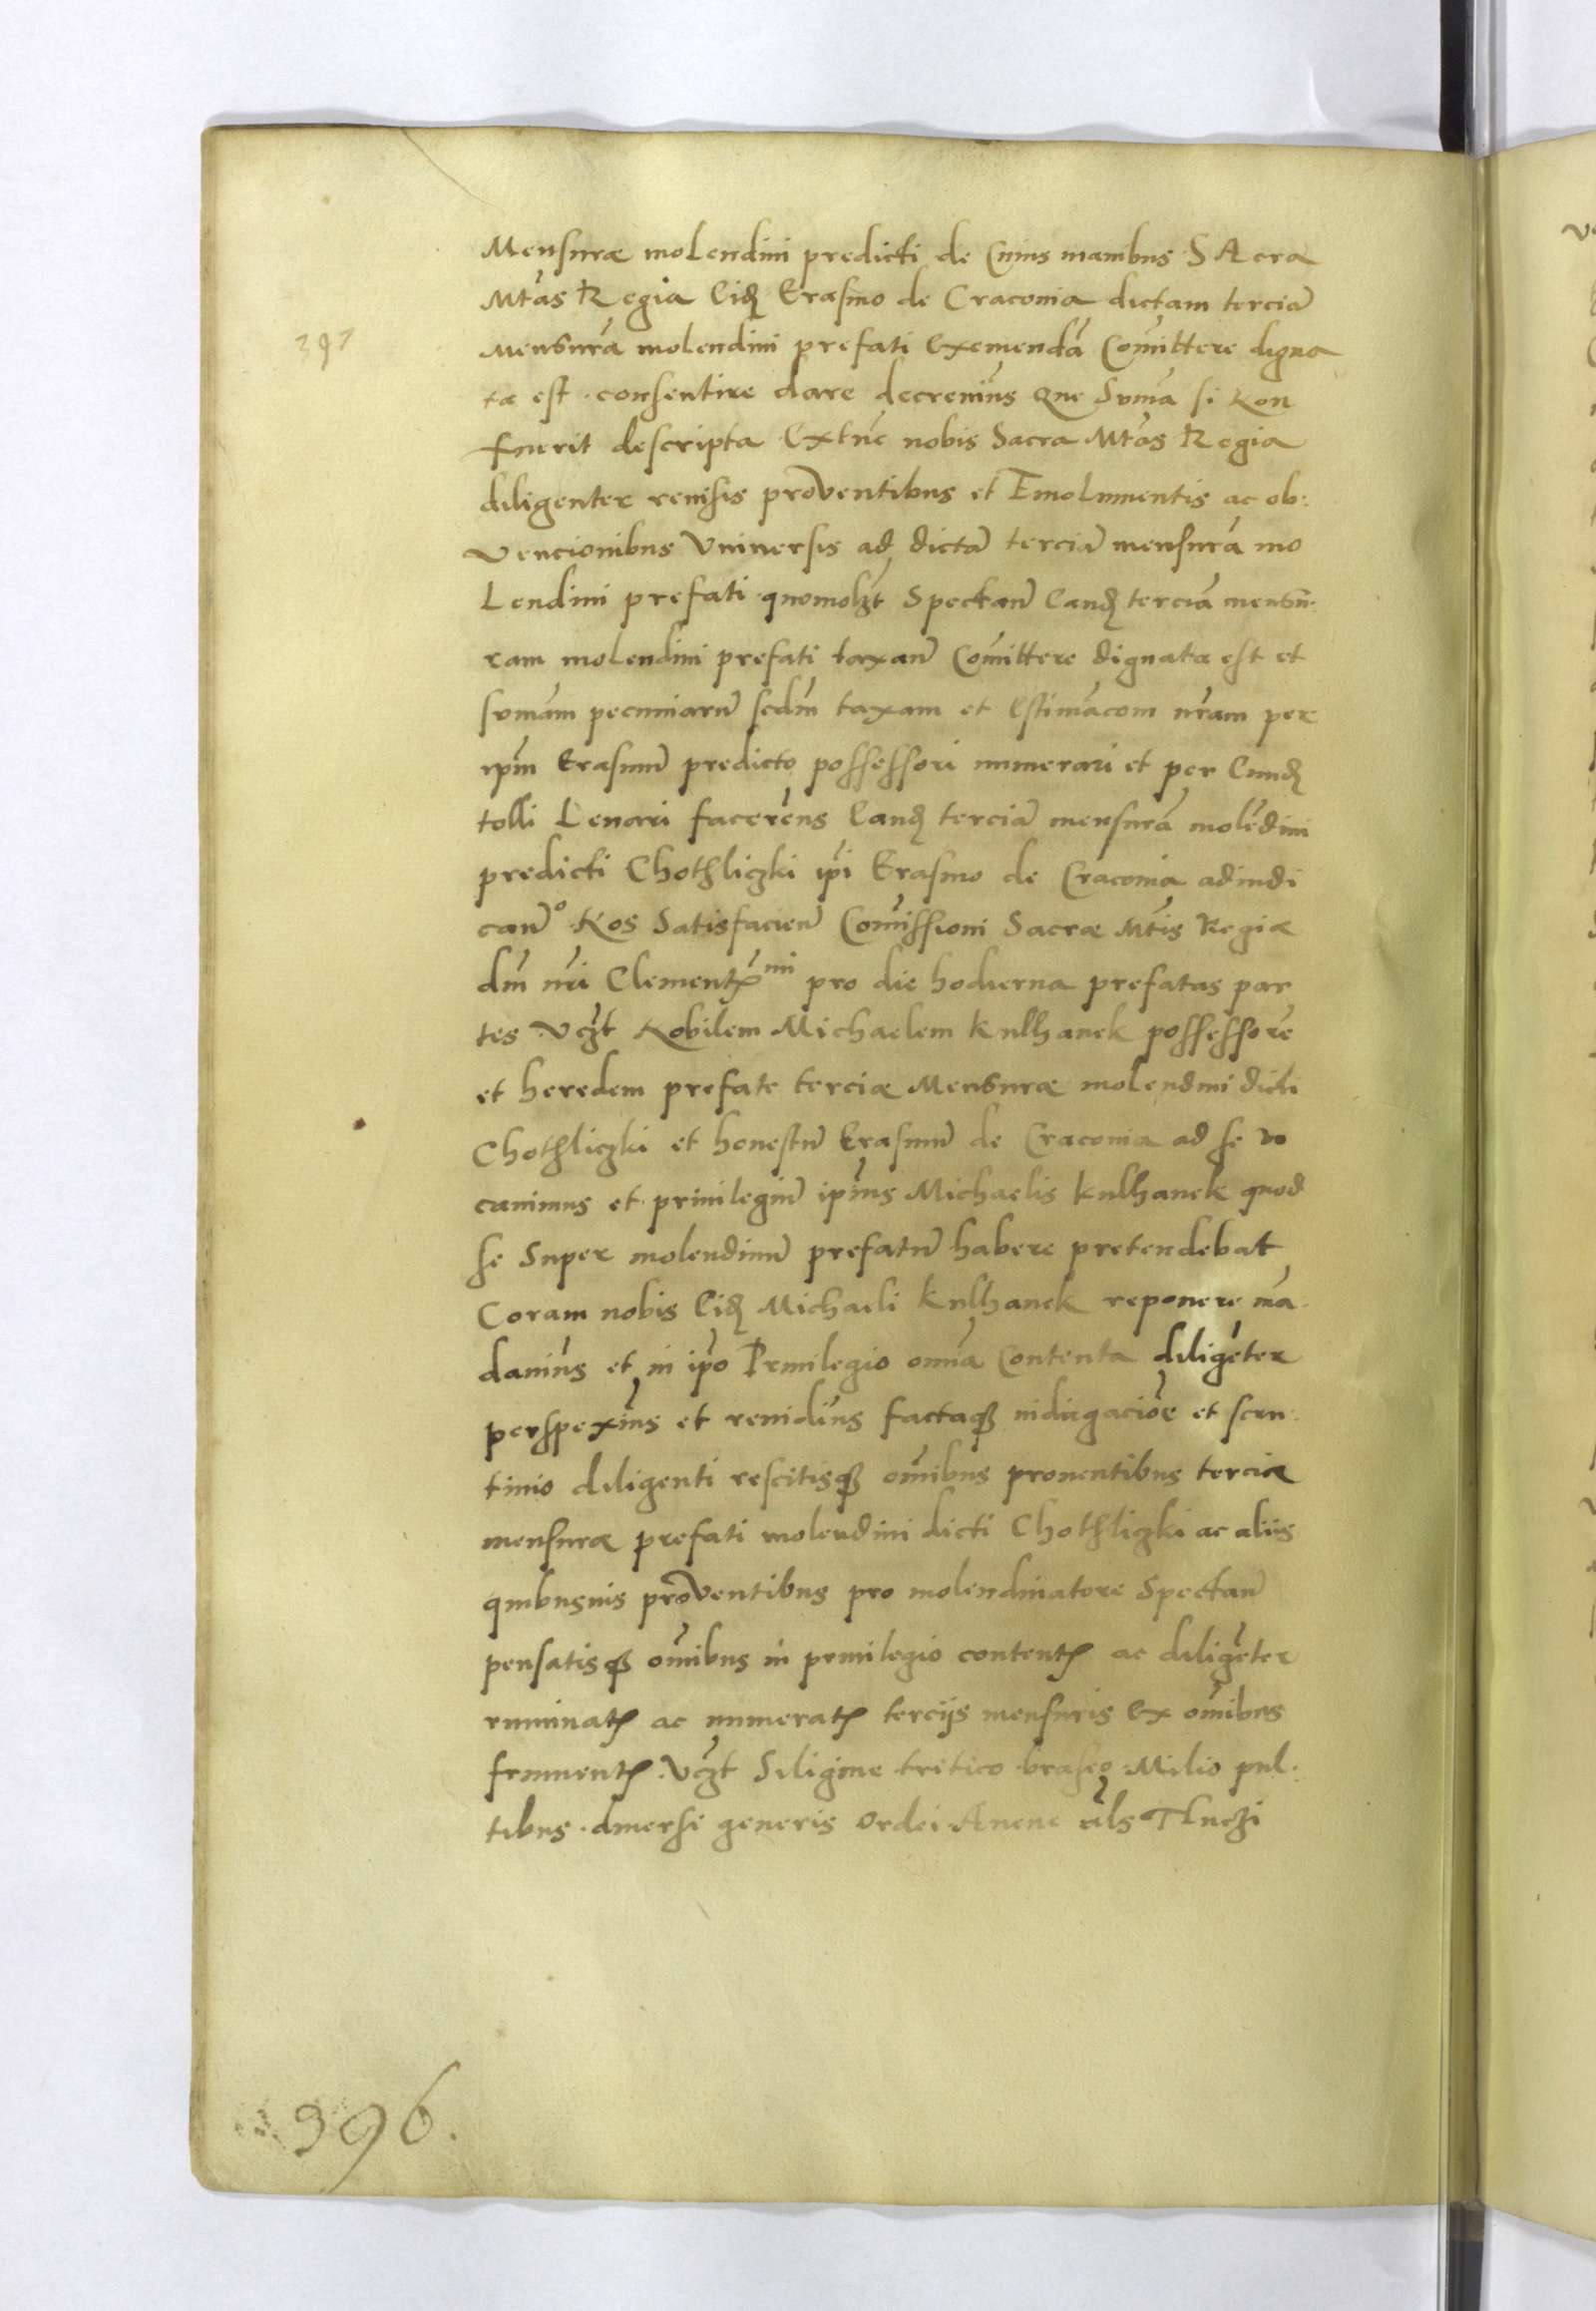 Mensuræ molendini predicti de Cuius manibus SAcra
Mtas Regia Eidē Erasmo de Craconia dictam terciā
391
Mensurā molendini prefati exemendā Comittere digna
ta est consentire dare decrevim9 Que Suma si Non
fuerit descripta extūc nobis Sacra Mtas Regia
diligenter revisis proventibus et Emolumentis ac ob:
Vencionibus Vniversis ad dictā terciā mensurā mo
Lendini prefati quomolzt Spectan̄ Eandē terciā mensu:
ram molendini prefati taxan̄ Comittere dignata est et
sumam pecuniarū scdm taxam et Estimacōm nrām per
ipm Erasmū predicto possessori numerari et per Eundē
tolli Levari facerēus Eandē terciā mensurā molēdini
predicti Chothliczki ipi Erasmo de Craconia adiudi
can̄° Nos Satisfacien̄ Comissioni Sacræ Mtis Regiæ
dm̄ nri Clementx̄mi pro die hodierna prefatas par
tes Vczt Nobilem Michaelem Kulhanek possessorē
et heredem prefate terciæ Mensuræ molendini dicti
Chothliczki et honestū Erasmū de Craconia ad se vo
cavimus et privilegiū ipius Michaelis Kulhanek quod
se Super molendinū prefatū habere pretendebat
Coram nobis Eidē Michaeli Kulhanek reponere mā
davim9 et in ipo Privilegio omnia Contenta diligēter
perspexim9 et revidim9 factaqȝ indicgaciōe et scru
tinio diligenti rescitisqȝ omibus proventibus terciæ
mensuræ prefati molendini dicti Chothliczki ac aliis
quibusvis proventibus pro molendinatore Spectan̄
pensatisqȝ omibus in privilegio contentꝭ ac diligēter
ruminatꝭ ac numeratꝭ terciis mensuris Ex omibus
frumentꝭ Vczt Siligine tritico braseo Milio pul
tibus diversi generis Ordei Avene als Tluczi
396.